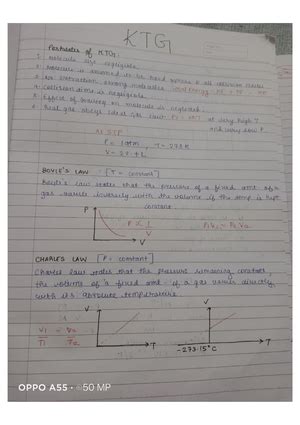 KTG
Postulates of KTG:
1. molecule size negligible.
2. Molecule is assumed to be hard sphere & all collision elastic
3. No attraction among molecules. Total Energy = KE + PE = KE
4. collision time is negligible.
5. Effect of gravity on molecule is neglected.
6. Real gas obeys ideal gas law PV = nRT at very high T
and very low P.
At STP
P = 1 atm, T = 273 K
V = 22.4 L
BOYLE'S LAW : [T = constant]
Boyle's law states that the pressure of a fixed amt. of a
gas varies inversely with the volume if the temp is kept
constant.
P
P ∝ 1/V
P1V1 = P2V2
V
CHARLE'S LAW [P = constant]
Charles law states that the pressure remaining constant,
the volume of a fixed amt. of a gas varies directly
with its absolute temperature.
V
V
V1/T1 = V2/T2
T
-273.15°C
T
OPPO A55 · 50 MP